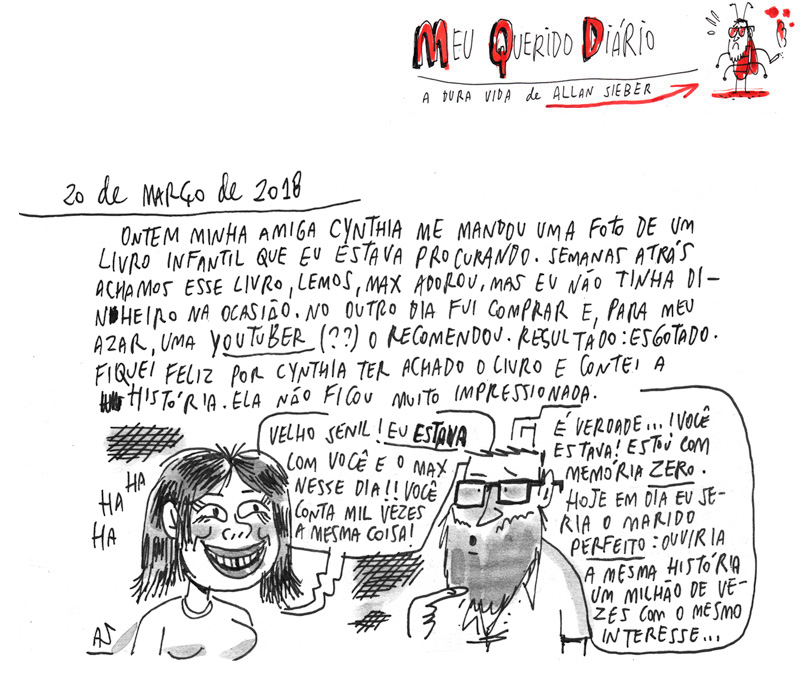 MEU QUERIDO DIÁRIO
A DURA VIDA de ALLAN SIEBER
20 de MARÇO de 2018
ONTEM MINHA AMIGA CYNTHIA ME MANDOU UMA FOTO DE UM
LIVRO INFANTIL QUE EU ESTAVA PROCURANDO. SEMANAS ATRÁS
ACHAMOS ESSE LIVRO, LEMOS, MAX ADOROU, MAS EU NÃO TINHA DI-
NHEIRO NA OCASIÃO. NO OUTRO DIA FUI COMPRAR E, PARA MEU
AZAR, UMA YOUTUBER (??) O RECOMENDOU. RESULTADO: ESGOTADO.
FIQUEI FELIZ POR CYNTHIA TER ACHADO O LIVRO E CONTEI A
HISTÓRIA. ELA NÃO FICOU MUITO IMPRESSIONADA.
HA
HA
HA
VELHO SENIL! EU ESTAVA
COM VOCÊ E O MAX
NESSE DIA!! VOCÊ
CONTA MIL VEZES
A MESMA COISA!
É VERDADE...! VOCÊ
ESTAVA! ESTOU COM
MEMÓRIA ZERO.
HOJE EM DIA EU SE-
RIA O MARIDO
PERFEITO: OUVIRIA
A MESMA HISTÓRIA
UM MILHÃO DE VE-
ZES COM O MESMO
INTERESSE...
AS